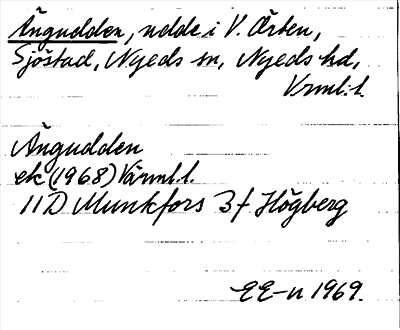 Ängudden, udde i V. Örten,
Sjöstad, Nyeds sn, Nyeds hd,
Vrml.l.
Ängudden
ek (1968) Värml.l.
11D Munkfors 3f Högberg
EE-n 1969.